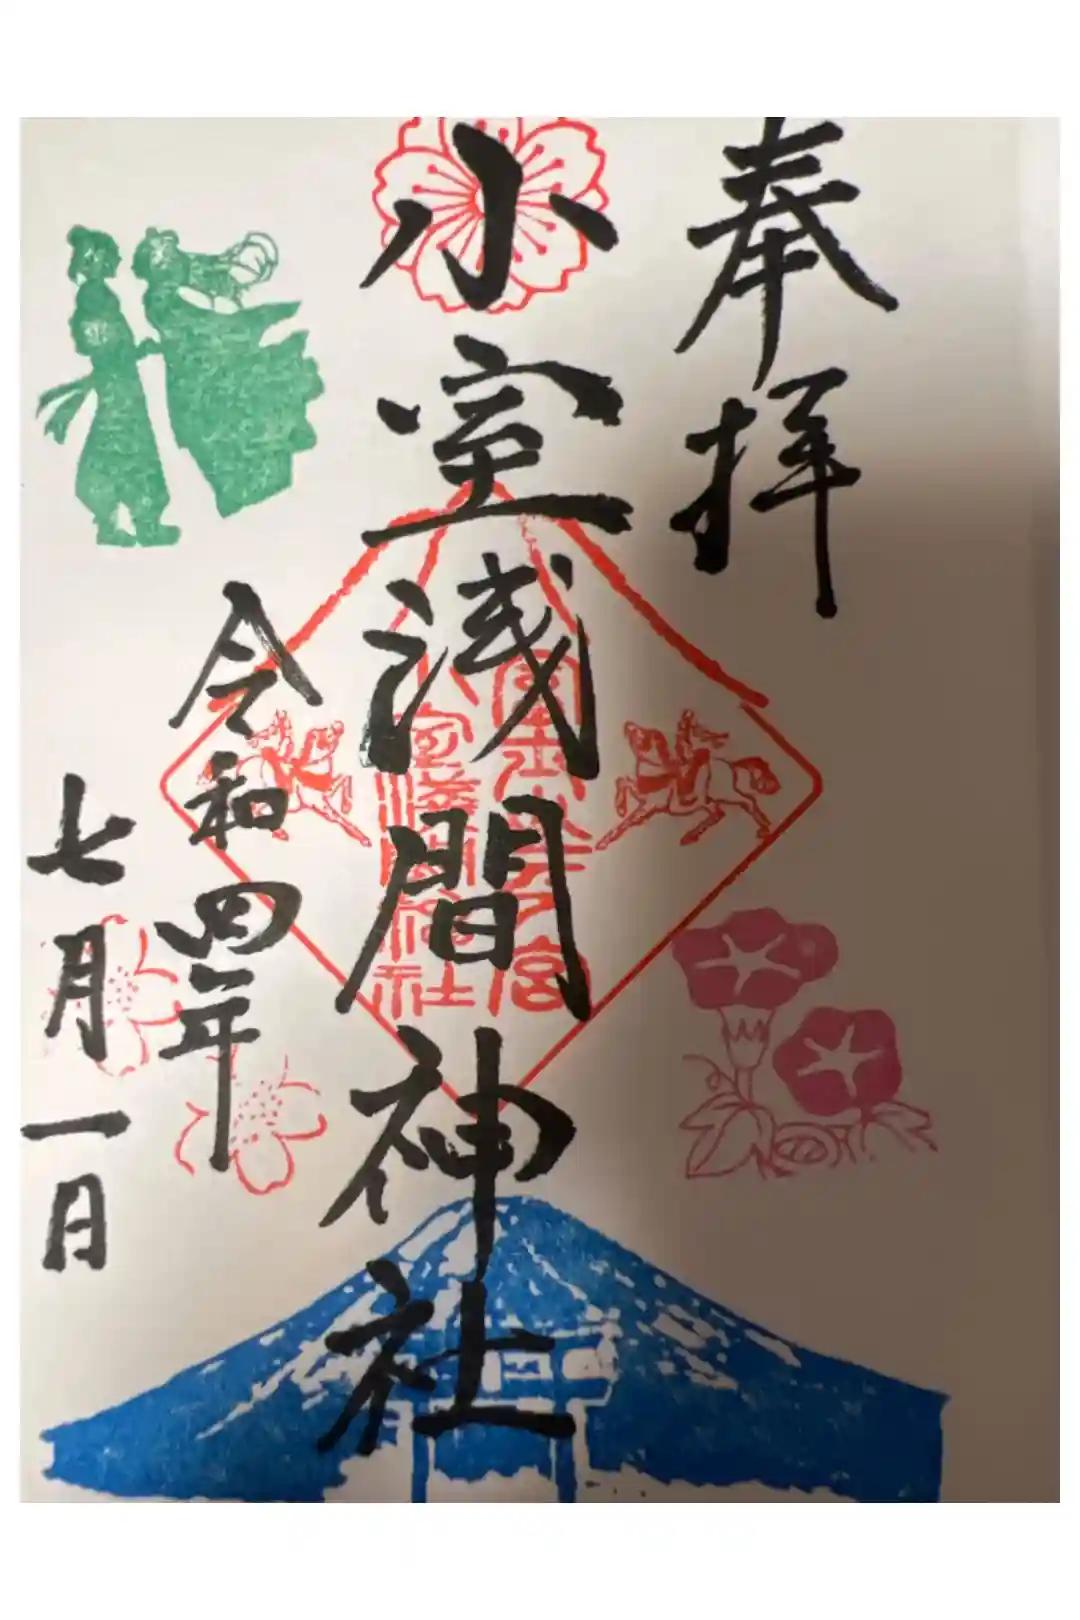 奉拝
小室浅間神社
令和四年
七月一日